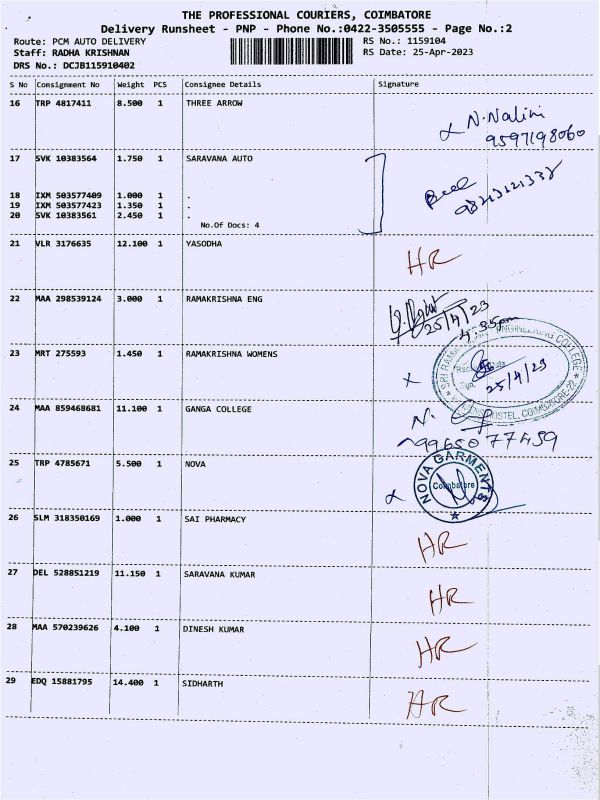 THE PROFESSIONAL COURIERS, COIMBATORE
Delivery Runsheet - PNP - Phone No.:0422-3505555 - Page No.:2
Route: PCM AUTO DELIVERY RS No.: 1159104
Staff: RADHA KRISHNAN RS Date: 25-Apr-2023
DRS No.: DCJB115910402
S No Consignment No Weight PCS Consignee Details Signature
16 TRP 4817411 8.500 1 THREE ARROW
N. Nalini
9597198060
17 SVK 10383564 1.750 1 SARAVANA AUTO
18 IXM 503577409 1.000 1 .
19 IXM 503577423 1.350 1 .
20 SVK 10383561 2.450 1 .
No.Of Docs: 4
21 VLR 3176635 12.100 1 YASODHA HR
22 MAA 298539124 3.000 1 RAMAKRISHNA ENG
25/4/23
4.35pm
23 MRT 275593 1.450 1 RAMAKRISHNA WOMENS
ENGINEERING COLLEGE
25/4/23
HOSTEL, COIMBATORE-22
24 MAA 859468681 11.100 1 GANGA COLLEGE
9965077459
25 TRP 4785671 5.500 1 NOVA
NOVA GARMENTS
Coimbatore
26 SLM 318350169 1.000 1 SAI PHARMACY HR
27 DEL 528851219 11.150 1 SARAVANA KUMAR HR
28 MAA 570239626 4.100 1 DINESH KUMAR HR
29 EDQ 15881795 14.400 1 SIDHARTH HR